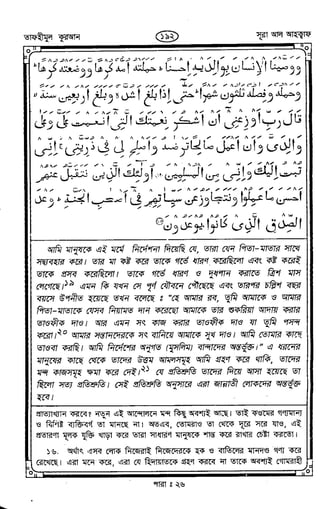 তাফহীমুল কুরআন
১৯২
সূরা আল আহক্বাফ
ووصينا الإنسان بوالديه إحسنا حملته أمه كرها ووضعته كرها
وحمله وفصله ثلثون شهرا حتى إذا بلغ أشده وبلغ أربعين سنة
قال رب أوزعني أن أشكر نعمتك التي أنعمت علي وعلى
والدي وأن أعمل صالحا ترضه وأصلح لي في ذريتي إني
تبت إليك وإني من المسلمين أولئك الذين نتقبل عنهم
أحسن ما عملوا ونتجاوز عن سياتهم في أصحب الجنة وعد
الصدق الذي كانوا يوعدون
আমি মানুষকে এই মর্মে নির্দেশনা দিয়েছি যে, তারা যেন পিতা-মাতার সাথে
সদ্ব্যবহার করে। তার মা কষ্ট করে তাকে গর্ভে ধারণ করেছিলো এবং কষ্ট করেই
তাকে প্রসব করেছিলো। তাকে গর্ভে ধারণ ও দুধপান করাতে ত্রিশ মাস
লেগেছে।১৯ এমন কি যখন সে পূর্ণ যৌবনে পৌঁছেছে এবং তারপর চল্লিশ বছর
বয়সে উপনীত হয়েছে তখন বলেছে : "হে আমার রব, তুমি আমাকে ও আমার
পিতা-মাতাকে যেসব নিয়ামত দান করেছো আমাকে তার শুকরিয়া আদায় করার
তাওফীক দাও। আর এমন সৎ কাজ করার তাওফীক দাও যা তুমি পসন্দ
করো।২০ আমার সন্তানদেরকে সৎ বানিয়ে আমাকে সুখ দাও। আমি তোমার কাছে
তাওবা করছি। আমি নির্দেশের অনুগত (মুসলিম) বান্দাদের অন্তর্ভুক্ত।" এ ধরনের
মানুষের কাছ থেকে তাদের উত্তম আমলসমূহ আমি গ্রহণ করে থাকি, তাদের
মন্দ কাজসমূহ ক্ষমা করে দেই।২১ যে প্রতিশ্রুতি তাদের দিয়ে আসা হয়েছে তা
ছিলো সত্য প্রতিশ্রুতি। সেই প্রতিশ্রুতি অনুসারে এরা জান্নাতী লোকদের অন্তর্ভুক্ত
হবে।
প্রত্যাখ্যান করবে? নতুন এই আন্দোলনে মন্দ কিছু অবশ্যই আছে। তাই কওমের গণ্যমান্য
ও বিশিষ্ট ব্যক্তিবর্গ তা মানছে না। অতএব, তোমরাও তা থেকে দূরে সরে যাও, এই
প্রতারণা মূলক যুক্তি খাড়া করে তারা সাধারণ মানুষকে শান্ত করে রাখার চেষ্টা করতো।
১৬. অর্থাৎ এসব লোক নিজেরাই নিজেদেরকে হক ও বাতিলের মানদণ্ড গণ্য করে
রেখেছে। এরা মনে করে, এরা যে হিদায়াতকে গ্রহণ করবে না তাকে অবশ্যই গোমরাহী
পারা : ২৬